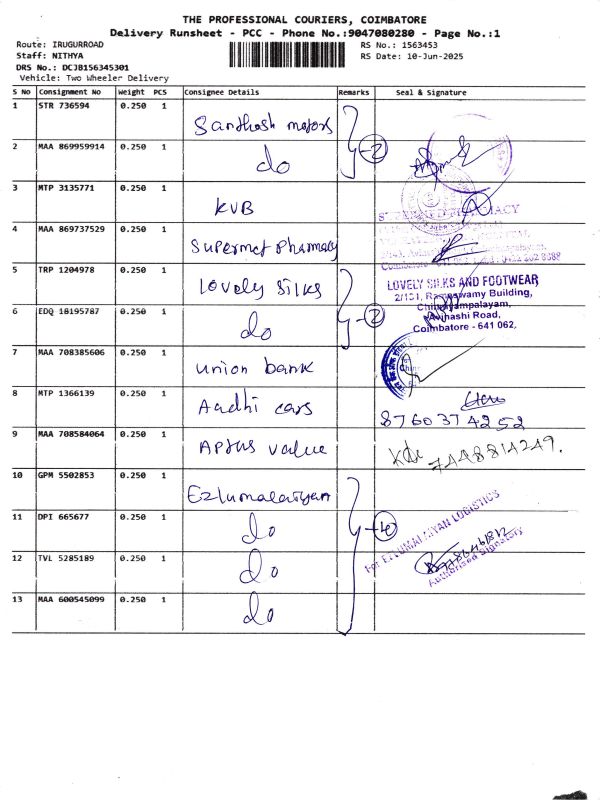 THE PROFESSIONAL COURIERS, COIMBATORE
Delivery Runsheet - PCC - Phone No.:9047080280 - Page No.:1
Route: IRUGURROAD
RS No.: 1563453
Staff: NITHYA
RS Date: 10-Jun-2025
DRS No.: DCJB156345301
Vehicle: Two Wheeler Delivery
S No Consignment No Weight PCS Consignee Details Remarks Seal & Signature
1 STR 736594 0.250 1 Santhosh motors
2 MAA 869959914 0.250 1 do -2
3 MTP 3135771 0.250 1 KVB
4 MAA 869737529 0.250 1 Supermet pharmacy
PHARMACY
5 TRP 1204978 0.250 1 Lovely Silks
LOVELY SILKS AND FOOTWEAR
2/151, Ramaswamy Building,
Chinniyampalayam,
Avinashi Road,
Coimbatore - 641 062.
6 EDQ 18195787 0.250 1 do -2
7 MAA 708385606 0.250 1 union bank
8 MTP 1366139 0.250 1 Aadhi cars
8760374252
9 MAA 708584064 0.250 1 Aptus value
7448814249.
10 GPM 5502853 0.250 1 Ezlumalaiyan
11 DPI 665677 0.250 1 do -4
For EZLUMALAIYAN LOGISTICS
12 TVL 5285189 0.250 1 do
Authorised Signatory
13 MAA 600545099 0.250 1 do